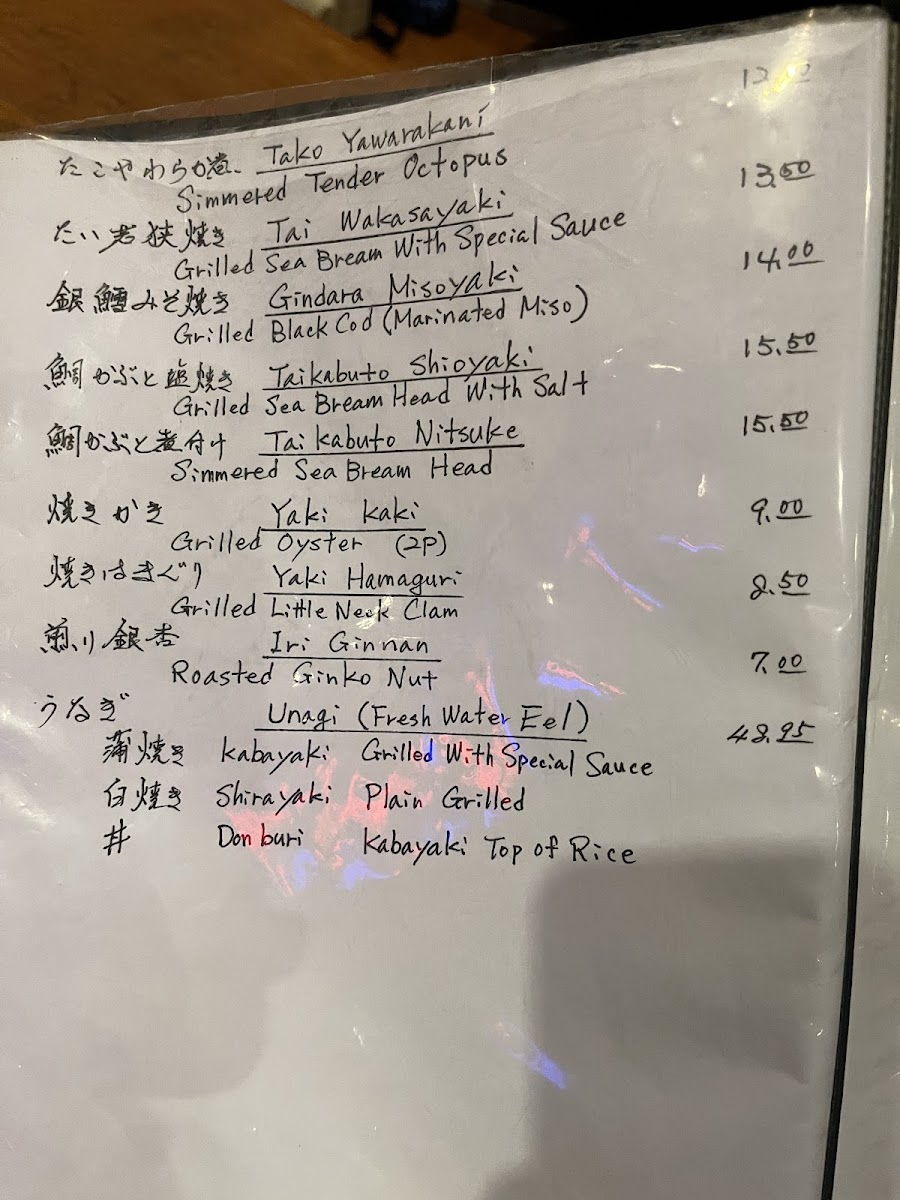 たこやわらか煮 Tako Yawarakani
Simmered Tender Octopus 13.50
たい若狭焼き Tai Wakasayaki
Grilled Sea Bream With Special Sauce 14.00
銀鱈みそ焼き Gindara Misoyaki
Grilled Black Cod (Marinated Miso) 15.50
鯛かぶと塩焼き Taikabuto Shioyaki
Grilled Sea Bream Head With Salt 15.50
鯛かぶと煮付け Taikabuto Nitsuke
Simmered Sea Bream Head
焼きかき Yaki kaki 9.00
Grilled Oyster (2P)
焼きはまぐり Yaki Hamaguri 8.50
Grilled Little Neck Clam
煎り銀杏 Iri Ginnan 7.00
Roasted Ginko Nut
うなぎ Unagi (Fresh Water Eel) 48.95
蒲焼き kabayaki Grilled With Special Sauce
白焼き Shirayaki Plain Grilled
丼 Donburi Kabayaki Top of Rice